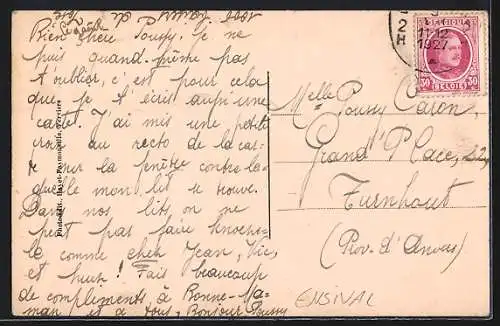 Bien chère Poussy. Je ne
puis quand-même pas
t'oublier, c'est pour cela
que je t'écris aussi une
carte. J'ai mis une petite
croix au recto de la car-
te sur la fenêtre contre la-
quelle mon lit se trouve.
Dans nos lits, on ne
peut pas faire
comme chez Jean,
et hein! Fais beaucoup
de compliments à Bonne-Ma-
man et à tous, Bonjour Poussy
Photo-édit. Verviers
2
H
11-12
1927
BELGIQUE
30 30
BELGIË
Melle Poussy Caron,
Grand'Place, 22,
Turnhout
(Prov. d'Anvers)
ENSIVAL